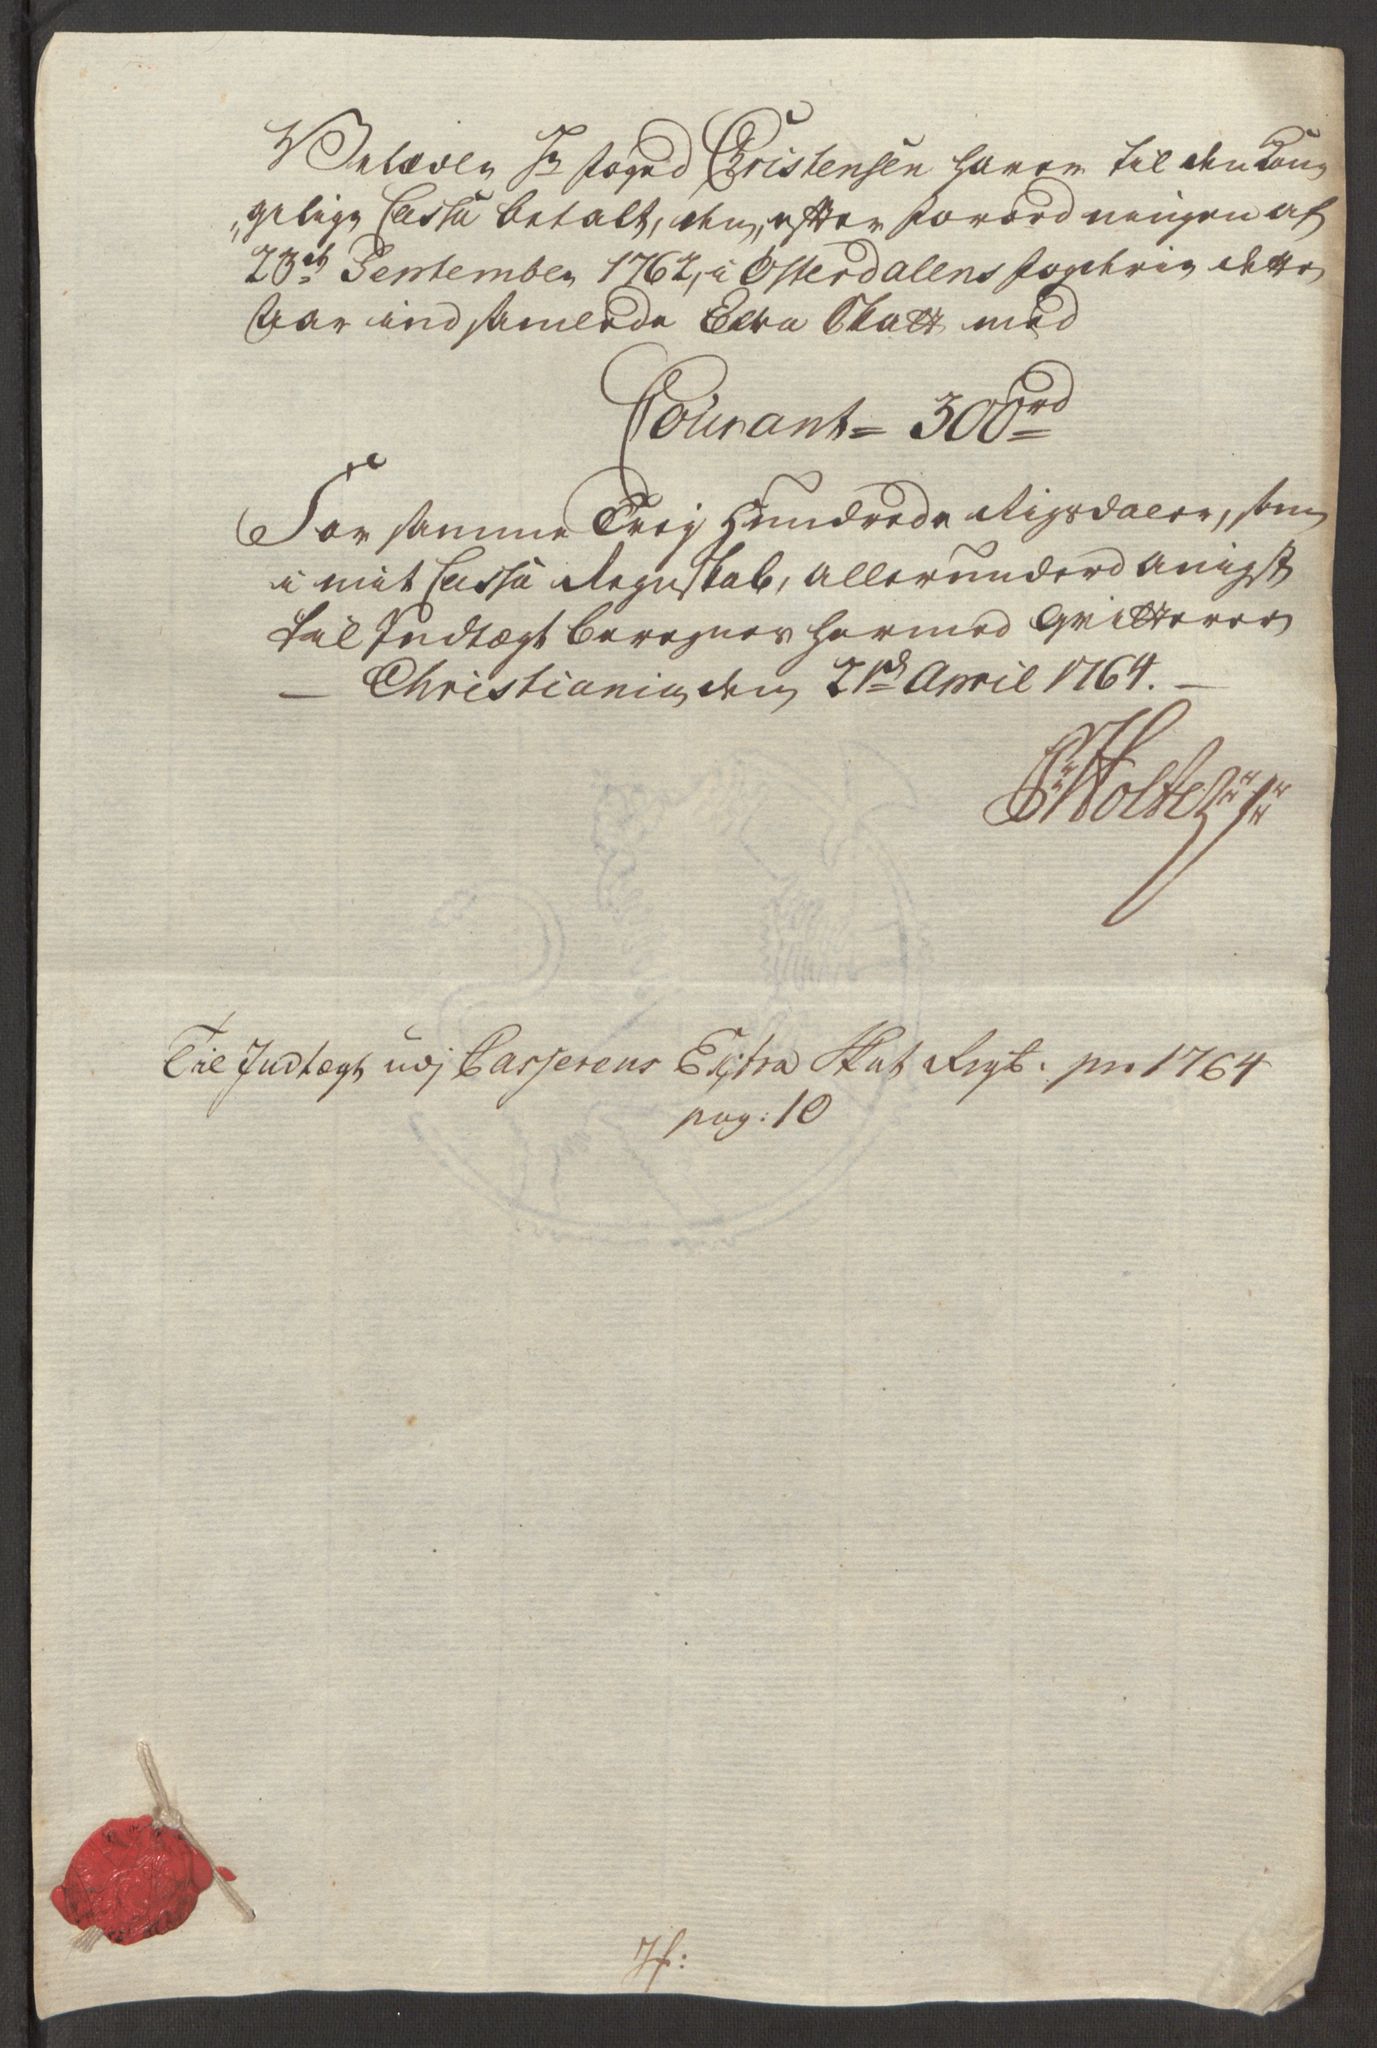 Velædle Hr Foged Christensen haver til den Kon
„gelige Cassa betalt, den, efter Forordningen af
23de September 1762, i Østerdalens Fogderie dette
Aar indsamlede Extra Skatt med
Courant = 300rd
For samme Trey Hundrede Rigsdaler, som
i mit Cassa Regnskab, allerunderdanigst
til Indtægt beregnes hermed Qvitterer
— Christiania den 21de April 1764. —
Holter
Til Indtægt udj Casserens Extra Skat Regsk. pro 1764
pag: 10